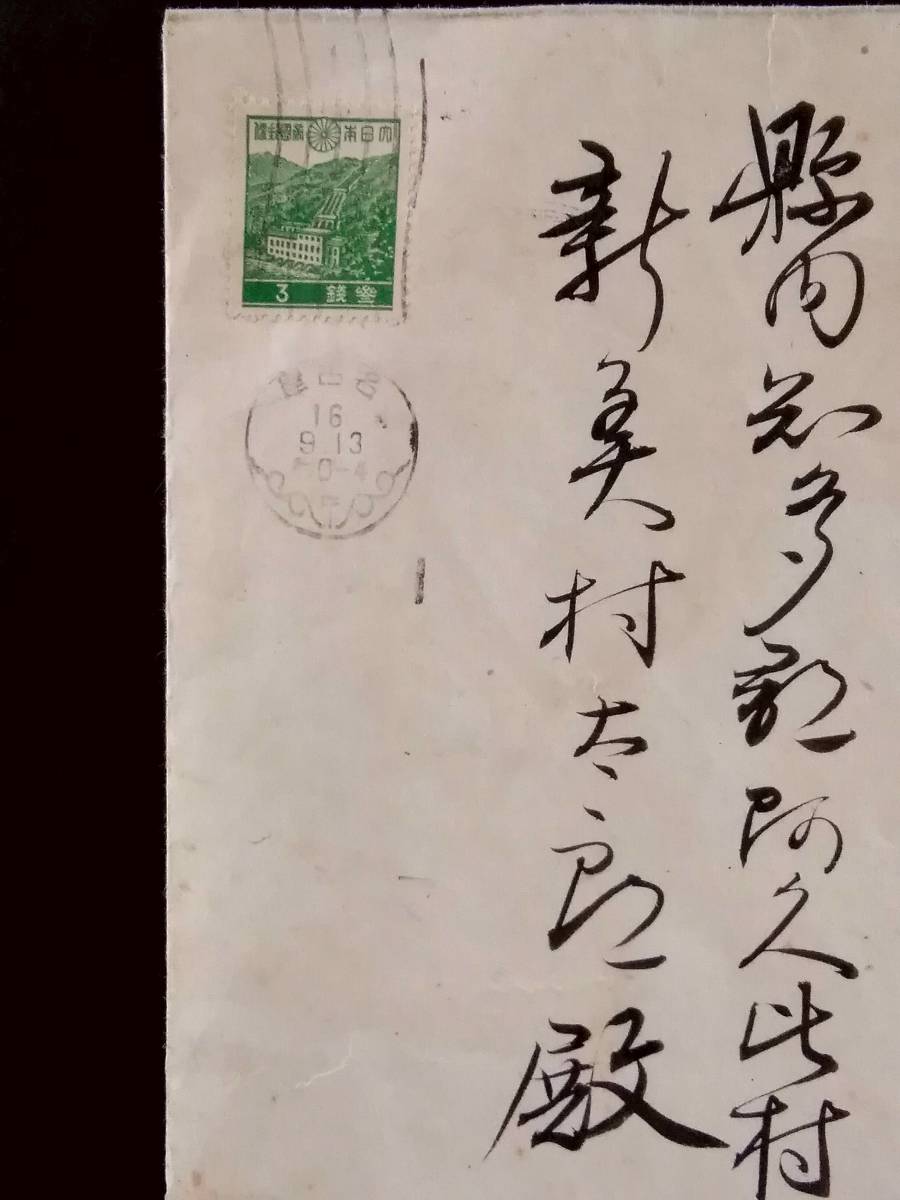 縣内知多郡阿久比村
新美村太郎殿
大日本帝國郵便
參錢 3
名古屋
16
9.13
0-4